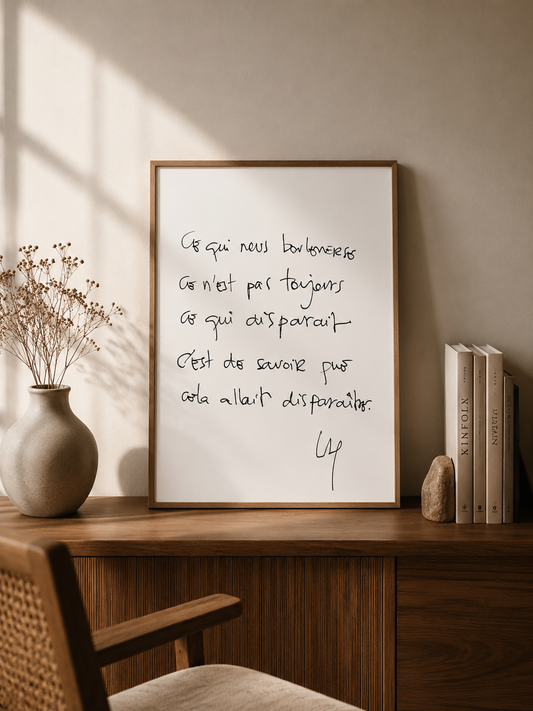 Ce qui nous bouleverse
ce n'est pas toujours
ce qui disparait
c'est de savoir que
cela allait disparaître.
KINFOLK